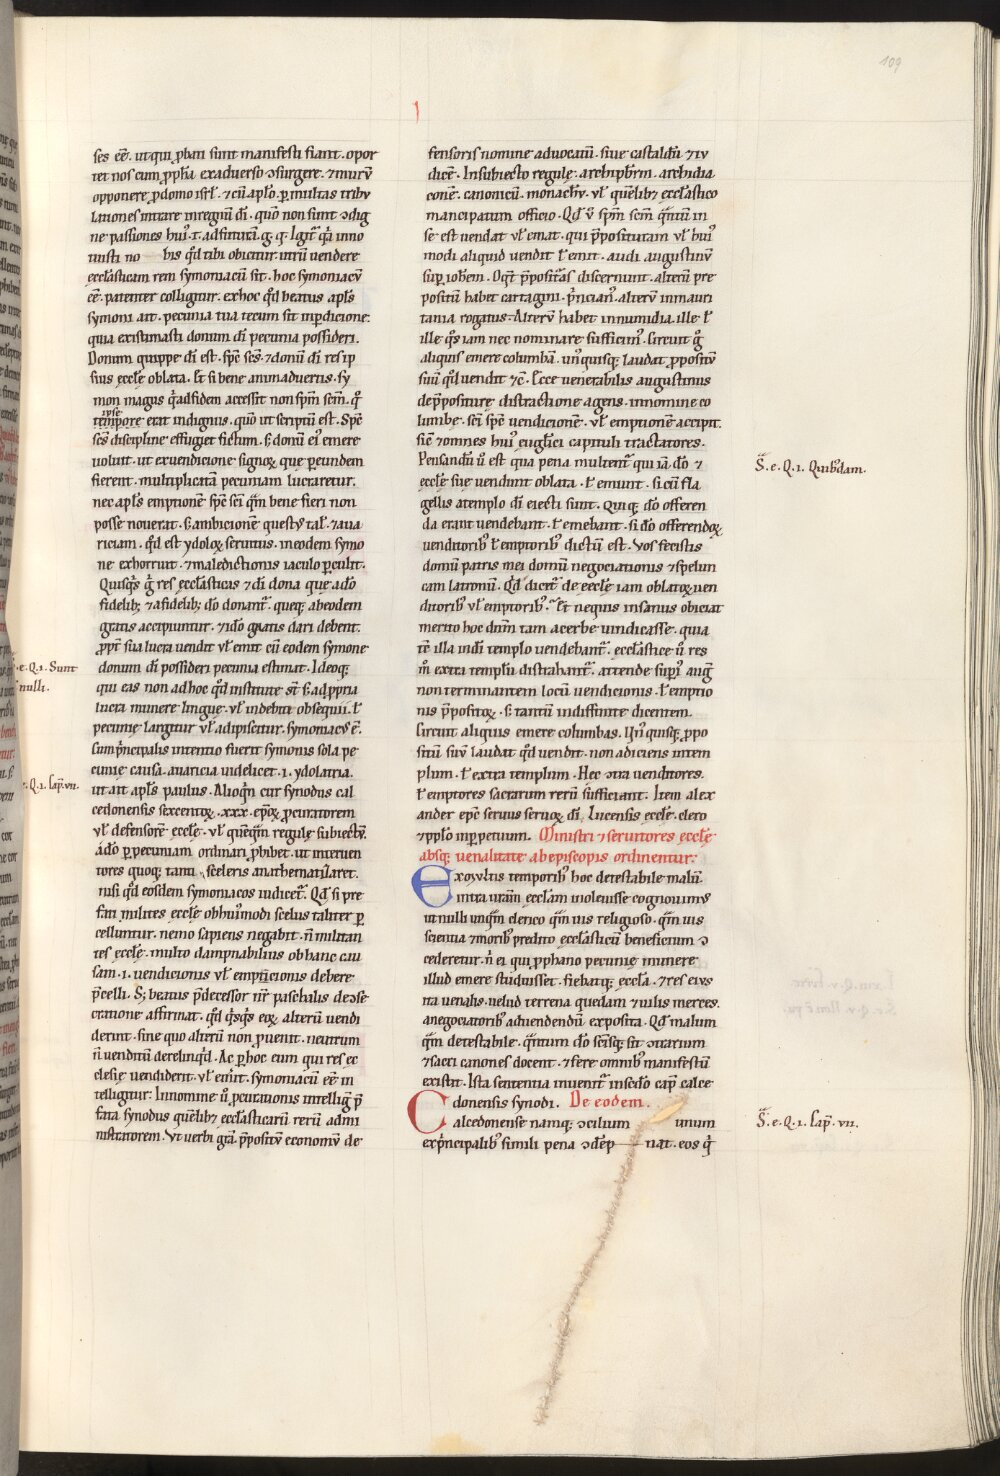 109
I
ses eē. ut qui ꝓbati sunt manifesti fiant. opor
tet nos cum ꝓpħa ex aduerso ↄsurgere. ⁊ murū
opponere ꝓ domo isrł. ⁊ cū apło. ꝑ multas tribu
lationes intrare in regnū dī. quō non sunt ↄdig
ne passiones hui᷒.t. ad futurā.g. q. Igit᷑ qͣ inno
uisti no bis qđ tibi obicitur. utrū uendere
ecclasticam rem symoniacū sit. hoc symoniacū
eē. patenter colligitur. ex hoc qđ beatus apłs
symoni ait. pecunia tua tecum sit in ꝑdicione.
quia existimasti donum dī pecunia possideri.
Donum quippe dī est. spē scē. ⁊ donū dī res ip
sius ecclę oblata. Et si bene animaduertis. sy
mon magus qͣ ad fidem accessit non spm̄ scm̄. qͦ
ipse
tempore erat indignus. quō ut scriptū est. Spē
scē discipline effugiet fictum. s; donū ei᷒ emere
uoluit. ut ex uendicione signoꝝ que per eundem
fierent. multiplicatā pecuniam lucraretur.
nec apłs emptionē spē scī qm̄ bene fieri non
posse nouerat. s; ambicionē questꝰ tał. ⁊ aua
riciam. qđ est ydoloꝝ seruitus. in eodem symo
ne exhorruit. ⁊ maledictionis iaculo ꝑculit.
Quisqͣs ḡ res ecclasticas ⁊ dī dona que a dō
fidelibꝫ ⁊ a fidelibꝫ dō donant᷑. queqꝫ ab eodem
gratis accipiuntur. ⁊ idō gratis dari debent.
ꝓpt᷑ sua lucra uendit uł emit cū eodem symone
donum dī possideri pecunia estimat. Ideoqꝫ
qui eas non ad hoc qđ institute sт̄. s; ad ꝓpria
lucra munere lingue. uł indebiti obsequii. ł
pecunię largitur uł adipiscitur. symoniacꝰ ē.
Cum pͥncipalis intentio fuerit symonis sola pe
cunię causa. auaricia uidelicet.i. ydolatria.
ut ait apłs paulus. Alioqͥn cur synodus cal
cedonensis sexcentoꝝ. xxx. ep̄oꝝ ꝓcuratorem
uł defensorē ecclę. uł quēqm̄ regulę subiectū.
adō ꝑ pecuniam ordinari ꝓhibet. ut interuen
tores quoqꝫ tanti sceleris anathematizaret.
nisi qđ eosdem symoniacos iudicet᷑. Qđ si pre
fati milites ecclę ob hui᷒modi scelus taliter ꝑ
celluntur. nemo sapiens negabit. n̄ militan
tes ecclę. multo dampnabilius ob hanc cau
sam.i. uendicionis uł emptͥcionis debere
ꝑcelli. S; beatus p̄decessor nr̄ paschalis de ↄse
cratione affirmat. qđ qͥsqͥs eoꝝ alterū uendi
derint. sine quo alterū non ꝓuenit. neutrum
n̄ uenditū derelinqͥd. Ac ꝑ hoc eum qui res ec
clesie uendiderit. uł em̄it. symoniacū eē in
telligitur. In nomine ū ꝓcurationis intelligͥ p̄
fata synodus quēlibꝫ ecclasticarū rerū admi
nistratorem. Vt uerbi grā p̄positū economū de
.e.Q.1. Sunt
nulli.
.Q.1. Cap̄.vii.
fensoris nomine aduocatū. siue castaldū ⁊ iu
dicē. In subiecto regulę. archipbr̄m. archidia
conē. canonicū. monachū. uł quēlibꝫ ecclastico
mancipatum officio. Qđ ū spm̄ scm̄ qͣntū in
se est uendat uł emat. qui p̄posituram uł hui᷒
modi aliquid uendit ł emit. audi augustinū
sup̱ iohem̄. Oꝗt p̄positͣas discernunt. alterū pre
positū habet cartagini. pͥncianꝰ. alterū in mauri
tania rogatus. Alterū habet in numidia. ille ł
ille qͦs iam nec nominare sufficim᷒. Circuit ḡ
aliquis emere columbā. un᷒quisqꝫ laudat ꝓpositū
suū qđ uendit ⁊c̄. Ecce uenerabilis augustinus
de p̄positurę distractione agens. in nomine co
lumbę. scī spē uendicionē. uł emptionē accipit.
sic̄ ⁊ omnes hui᷒ euglīci capituli tractatores.
Pensandū ū est qua pena multent᷑ qui iā dō ⁊
ecclę siue uendunt oblata. ł emunt. si cū fla
gellis a templo dī eiecti sunt. Quiqꝫ dō offeren
da erant uendebant. ł emebant. si dō offerendoꝝ
uenditoribꝰ ł emptoribꝰ dictū est. Vos fecistis
domū patris mei domū negociationis ⁊ spelun
cam latronū. Qđ dicet᷑ de ecclę iam oblatoꝝ uen
ditoribꝰ uł emptoribꝰ. Et nequis insanus obiciat
merito hoc dn̄m tam acerbe uindicasse. quia
tē illa in dī templo uendebant᷑. ecclasticę ū res
m̄ extra templū distrahant᷑. attende sup̱i᷒ aug᷒
non terminantem locū uendicionis. ł emptio
nis p̄positoꝝ. s; tantū indiffinite dicentem.
Circuit aliquis emere columbas. Un᷒ quisqꝫ ꝓpo
sitū suū laudat qđ uendit. non adiciens in tem
plum. ł extra templum. Hec ↄtra uenditores.
ł emptores sacrarum rerū sufficiant. Item alex
ander epē seruus seruoꝝ dī. lucensis ecclę. clero
⁊ ꝓplo in ꝑpetuum. Ministri ⁊ seruitores ecclę
absqꝫ uenalitate ab episcopis ordinentur:
Ex oꝯultis temporibꝰ hoc detestabile malū
intra uram̄ ecclam inoleuisse cognouimꝰ
ut nulli unqͣm clerico qm̄ uis religioso. qm̄ uis
scientia ⁊ moribꝰ predito ecclasticū beneficium ↄ
cederetur. n̄ ei qui ꝓphano pecunię munere
illud emere studuisset. fiebatqꝫ eccła. ⁊ res eius
ita uenalis. uelud terrena quedam ⁊ uilis merces.
a negociatoribꝰ ad uendendū exposita. Qđ malum
qm̄ detestabile. qͣntum dō scīsqꝫ sit ↄtrarium
⁊ sacri canones docent. ⁊ fere omnibꝰ manifestū
existit. Ista sententia inuenit᷑ in scđo cap̄ calce
donensis synodi. De eodem.
Calcedonense namqꝫ ↄcilium unum
ex pͥncipalibꝰ simili pena ↄdēp nat. eos qͥ
S̄.e.Q.1. Quibꝰdam.
S̄.e.Q.1. Cap̄. vii.